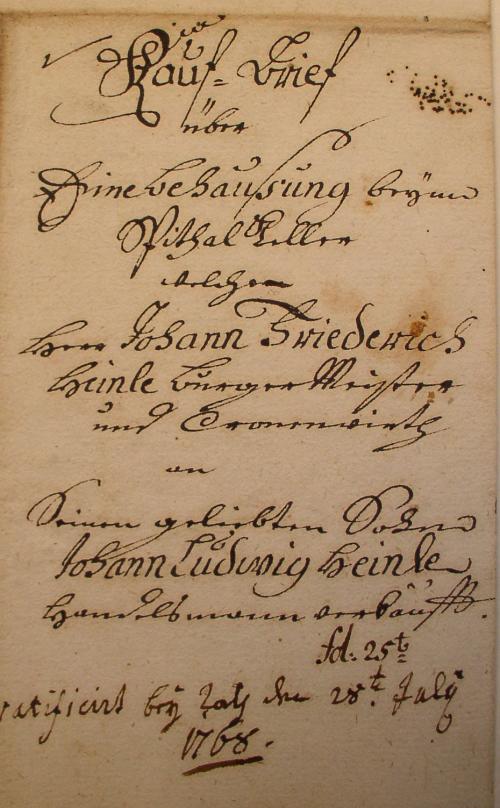 Kauf-Brief
über
Eine behaußung beÿm
Spithal Keller
welchen
Herr Johann Friederich
Heinle burger Meister
und Cronenwirth
an
Seinen geliebten Sohn
Johann Ludwig Heinle
Handelsmann verkaufft.
fd: 25t
ratificirt beÿ Rath den 28t Julÿ
1768.